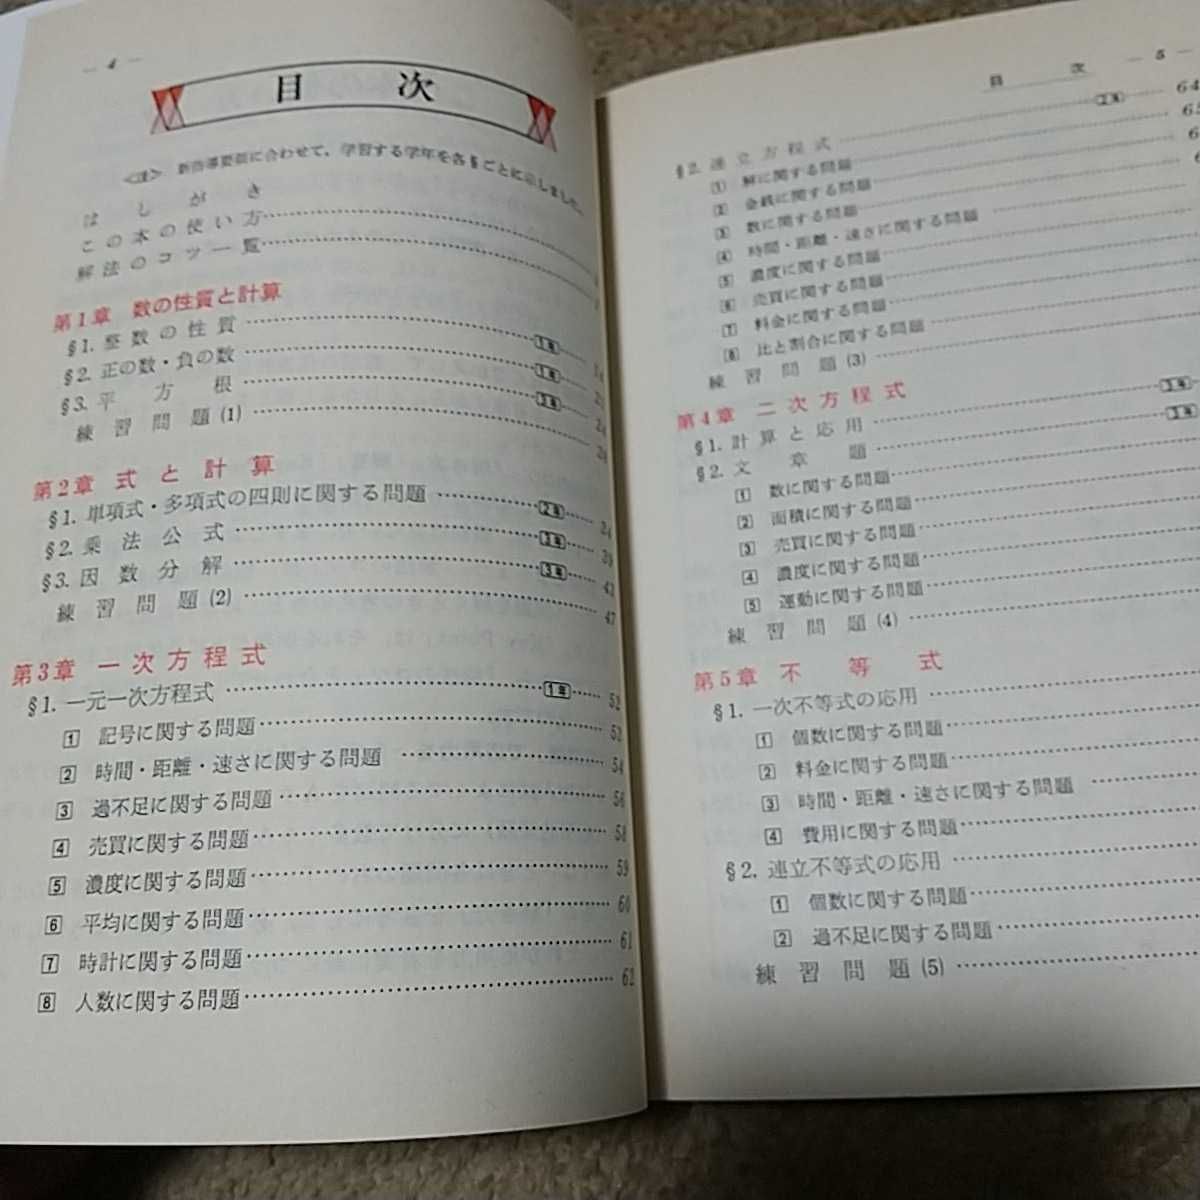 — 4 —
目 次
<注> 新指導要領に合わせて，学習する学年を各§ごとに示しました。
はしがき
この本の使い方
解法のコツ一覧
第1章 数の性質と計算
§1. 整数の性質 1年
§2. 正の数・負の数 1年
§3. 平方根 3年
練習問題(1)
第2章 式と計算
§1. 単項式・多項式の四則に関する問題 2年 34
§2. 乗法公式 3年 39
§3. 因数分解 3年 43
練習問題(2) 47
第3章 一次方程式
§1. 一元一次方程式 1年 52
1 記号に関する問題 52
2 時間・距離・速さに関する問題 54
3 過不足に関する問題 56
4 売買に関する問題 58
5 濃度に関する問題 59
6 平均に関する問題 60
7 時計に関する問題 61
8 人数に関する問題 62
目 次 — 5 —
§2. 連立方程式 2年 64
1 解に関する問題
2 金銭に関する問題
3 数に関する問題
4 時間・距離・速さに関する問題
5 濃度に関する問題
6 売買に関する問題
7 料金に関する問題
8 比と割合に関する問題
練習問題(3)
第4章 二次方程式
§1. 計算と応用 3年
§2. 文章題 3年
1 数に関する問題
2 面積に関する問題
3 売買に関する問題
4 濃度に関する問題
5 運動に関する問題
練習問題(4)
第5章 不等式
§1. 一次不等式の応用
1 個数に関する問題
2 料金に関する問題
3 時間・距離・速さに関する問題
4 費用に関する問題
§2. 連立不等式の応用
1 個数に関する問題
2 過不足に関する問題
練習問題(5)